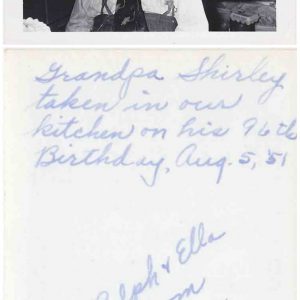 Grandpa Shirley
taken in our
kitchen on his 96th
Birthday, Aug. 5, '51
& Ella